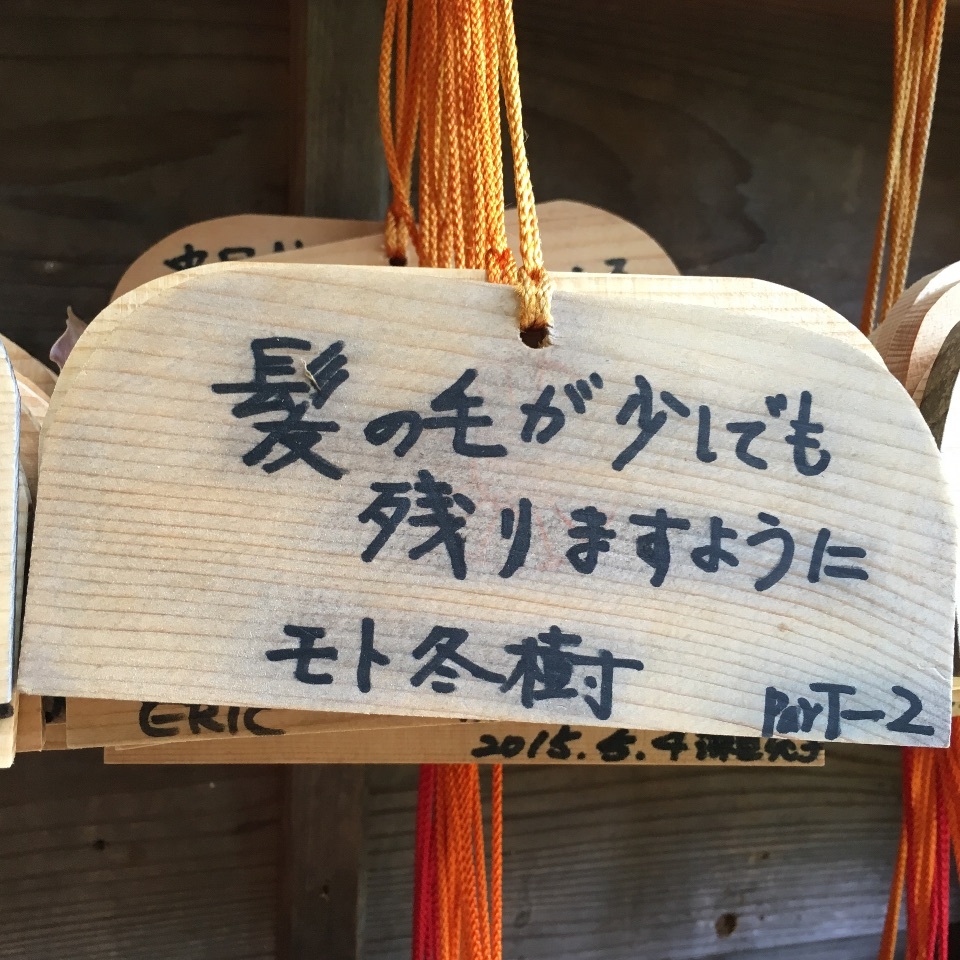 髪の毛が少しでも
残りますように
モト冬樹
ParT-2
ERIC
2015.5.4